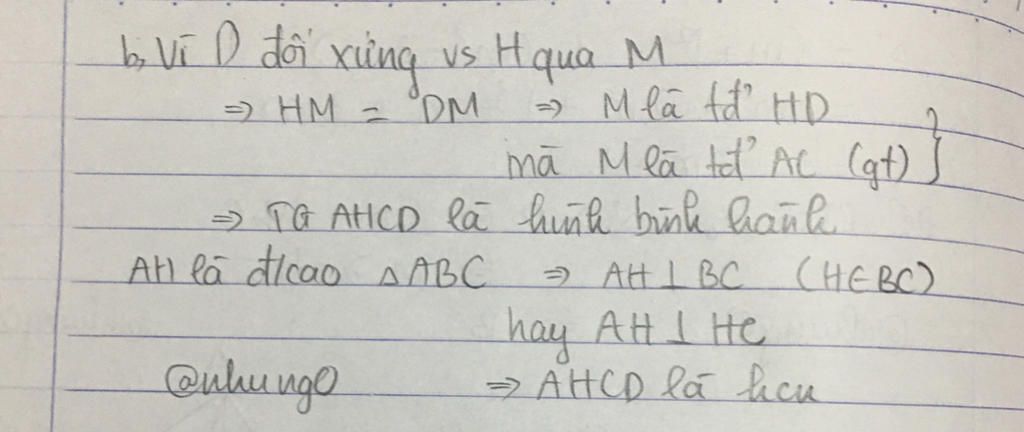 b, Vì D đối xứng vs H qua M
⇒ HM = DM ⇒ M là tđ' HD
mà M là tđ' AC (gt) }
⇒ TG AHCD là hình bình hành
AH là đ/cao △ABC ⇒ AH ⊥ BC (H∈BC)
hay AH ⊥ HC
@nhung0 ⇒ AHCD là hcn